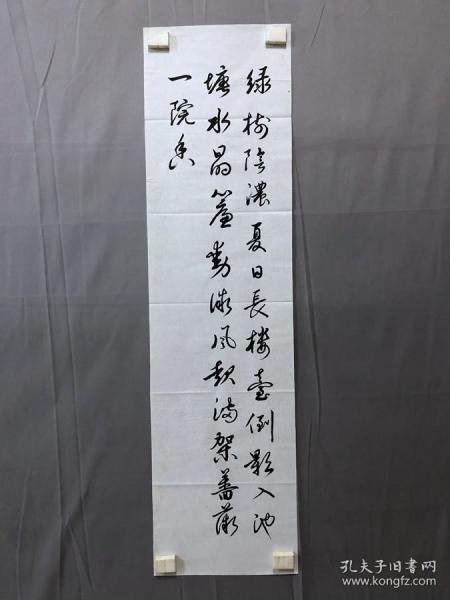 绿树陰濃夏日長楼臺倒影入池
塘水晶簾動微風起满架薔薇
一院香
孔夫子旧书网
www.kongfz.com